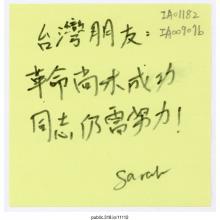 台灣朋友：
IA01182
IA00907b
革命尚未成功
同志仍需努力！
Sarah
public.318.io/11118